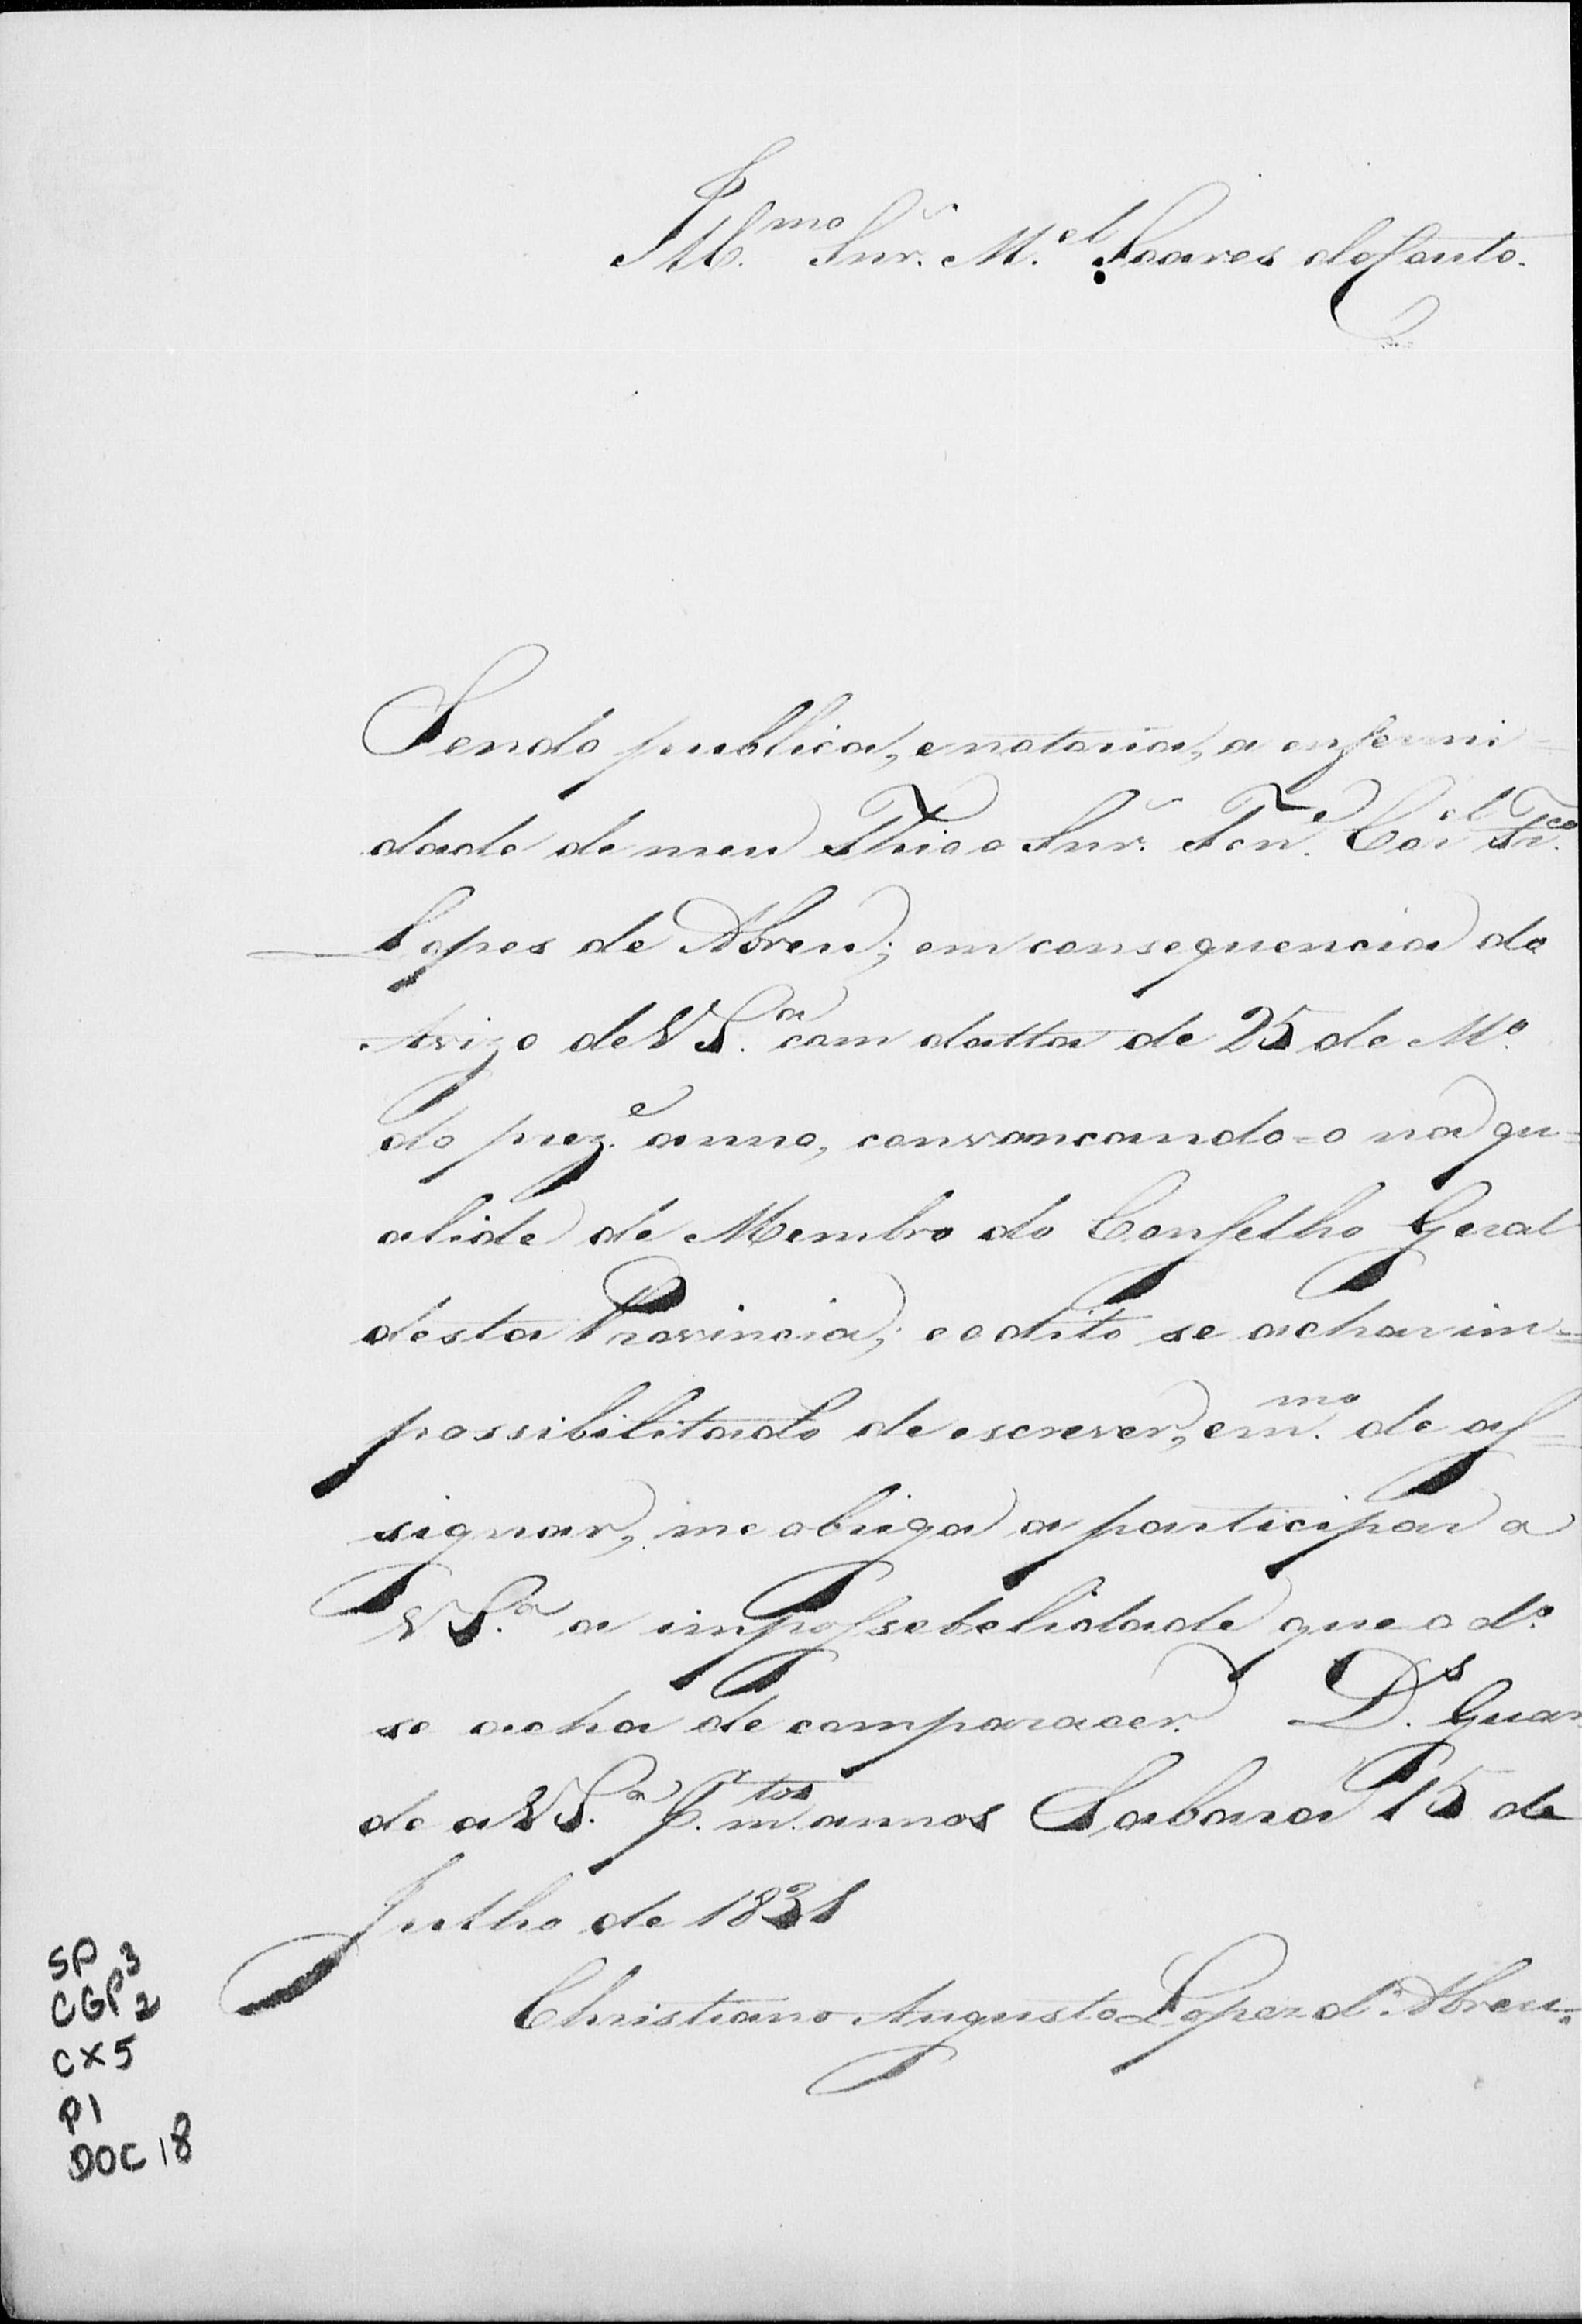 Ill.mo Snr. M.el Soares do Couto.
Sendo publica, e notoria, a enfermi=
dade de meu Thio o Snr. Ten.e Cor.el Fr.co
Lopes de Abreu; em consequencia do
Avizo de V S.a com datta de 25 de M.o
do prez.e anno, convoncando=o na qu=
alide de Membro do Conselho Geral
desta Provincia; e o dito se achar im=
possibilitado de escrever, e m.mo de as=
signar, me obriga a participar a
V S.a a impossebelidade que o d.o
se acha de comparacer. D.s Guar
de a V S.a p.r m.tos annos Sabara 15 de
Julho de 1831
Christiano Augusto Lopez d'Abreu.
SP
CGP3 2
CX5
P1
DOC 18